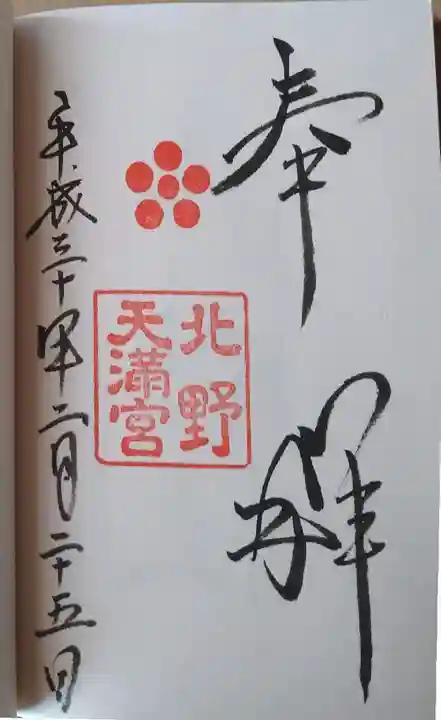 奉拝
北野
天満宮
平成三十年二月二十五日